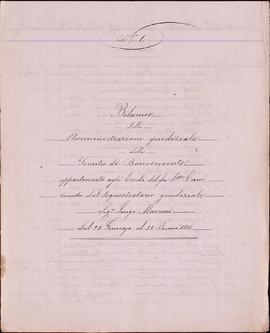 N° 1.
Bilancio
della
Amministrazione giudiziale
della
Tenuta di Bonconvento
appartenente agli Eredi del fu
tenuta dal Sequestratario giudiziale
Sig. Luigi Marconi
dal 21 Gennajo al 31